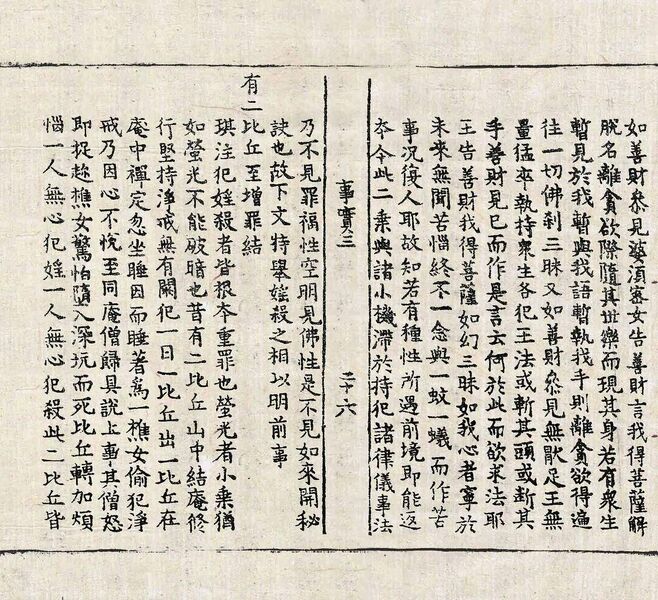 如善財叅見婆須宻女告善財言我得菩薩解
脫名離貪欲際隨其丗樂而現其身若有衆生
暫見於我暫與我語暫執我手則離貪欲得遍
往一切佛刹三昧又如善財叅見無猒足王無
量猛卒執持衆生各犯王法或斬其頭或断其
手善財見已而作是言云何於此而欲求法耶
王告善財我得菩薩如幻三昧如我心者寧於
未來無間苦惱終不一念與一蚊一蟻而作苦
事况復人耶故知若有種性所遇前境即能返
夲今此二乗與諸小機滯於持犯諸律儀事法
事實三
二十六
乃不見罪福性空明見佛性是不見如來開秘
訣也故下文特舉婬殺之相以明前事
有二比丘至增罪結
琪注犯婬殺者皆根夲重罪也螢光者小乗猶
如螢光不能破暗也昔有二比丘山中結庵修
行堅持淨戒無有闕犯一日一比丘出一比丘在
庵中禪定忽坐睡因而睡著爲一樵女偷犯淨
戒乃因心不悅至同庵僧歸具說上事其僧怒
即捉趂樵女驚怕墮入深坑而死比丘轉加煩
惱一人無心犯婬一人無心犯殺此二比丘皆